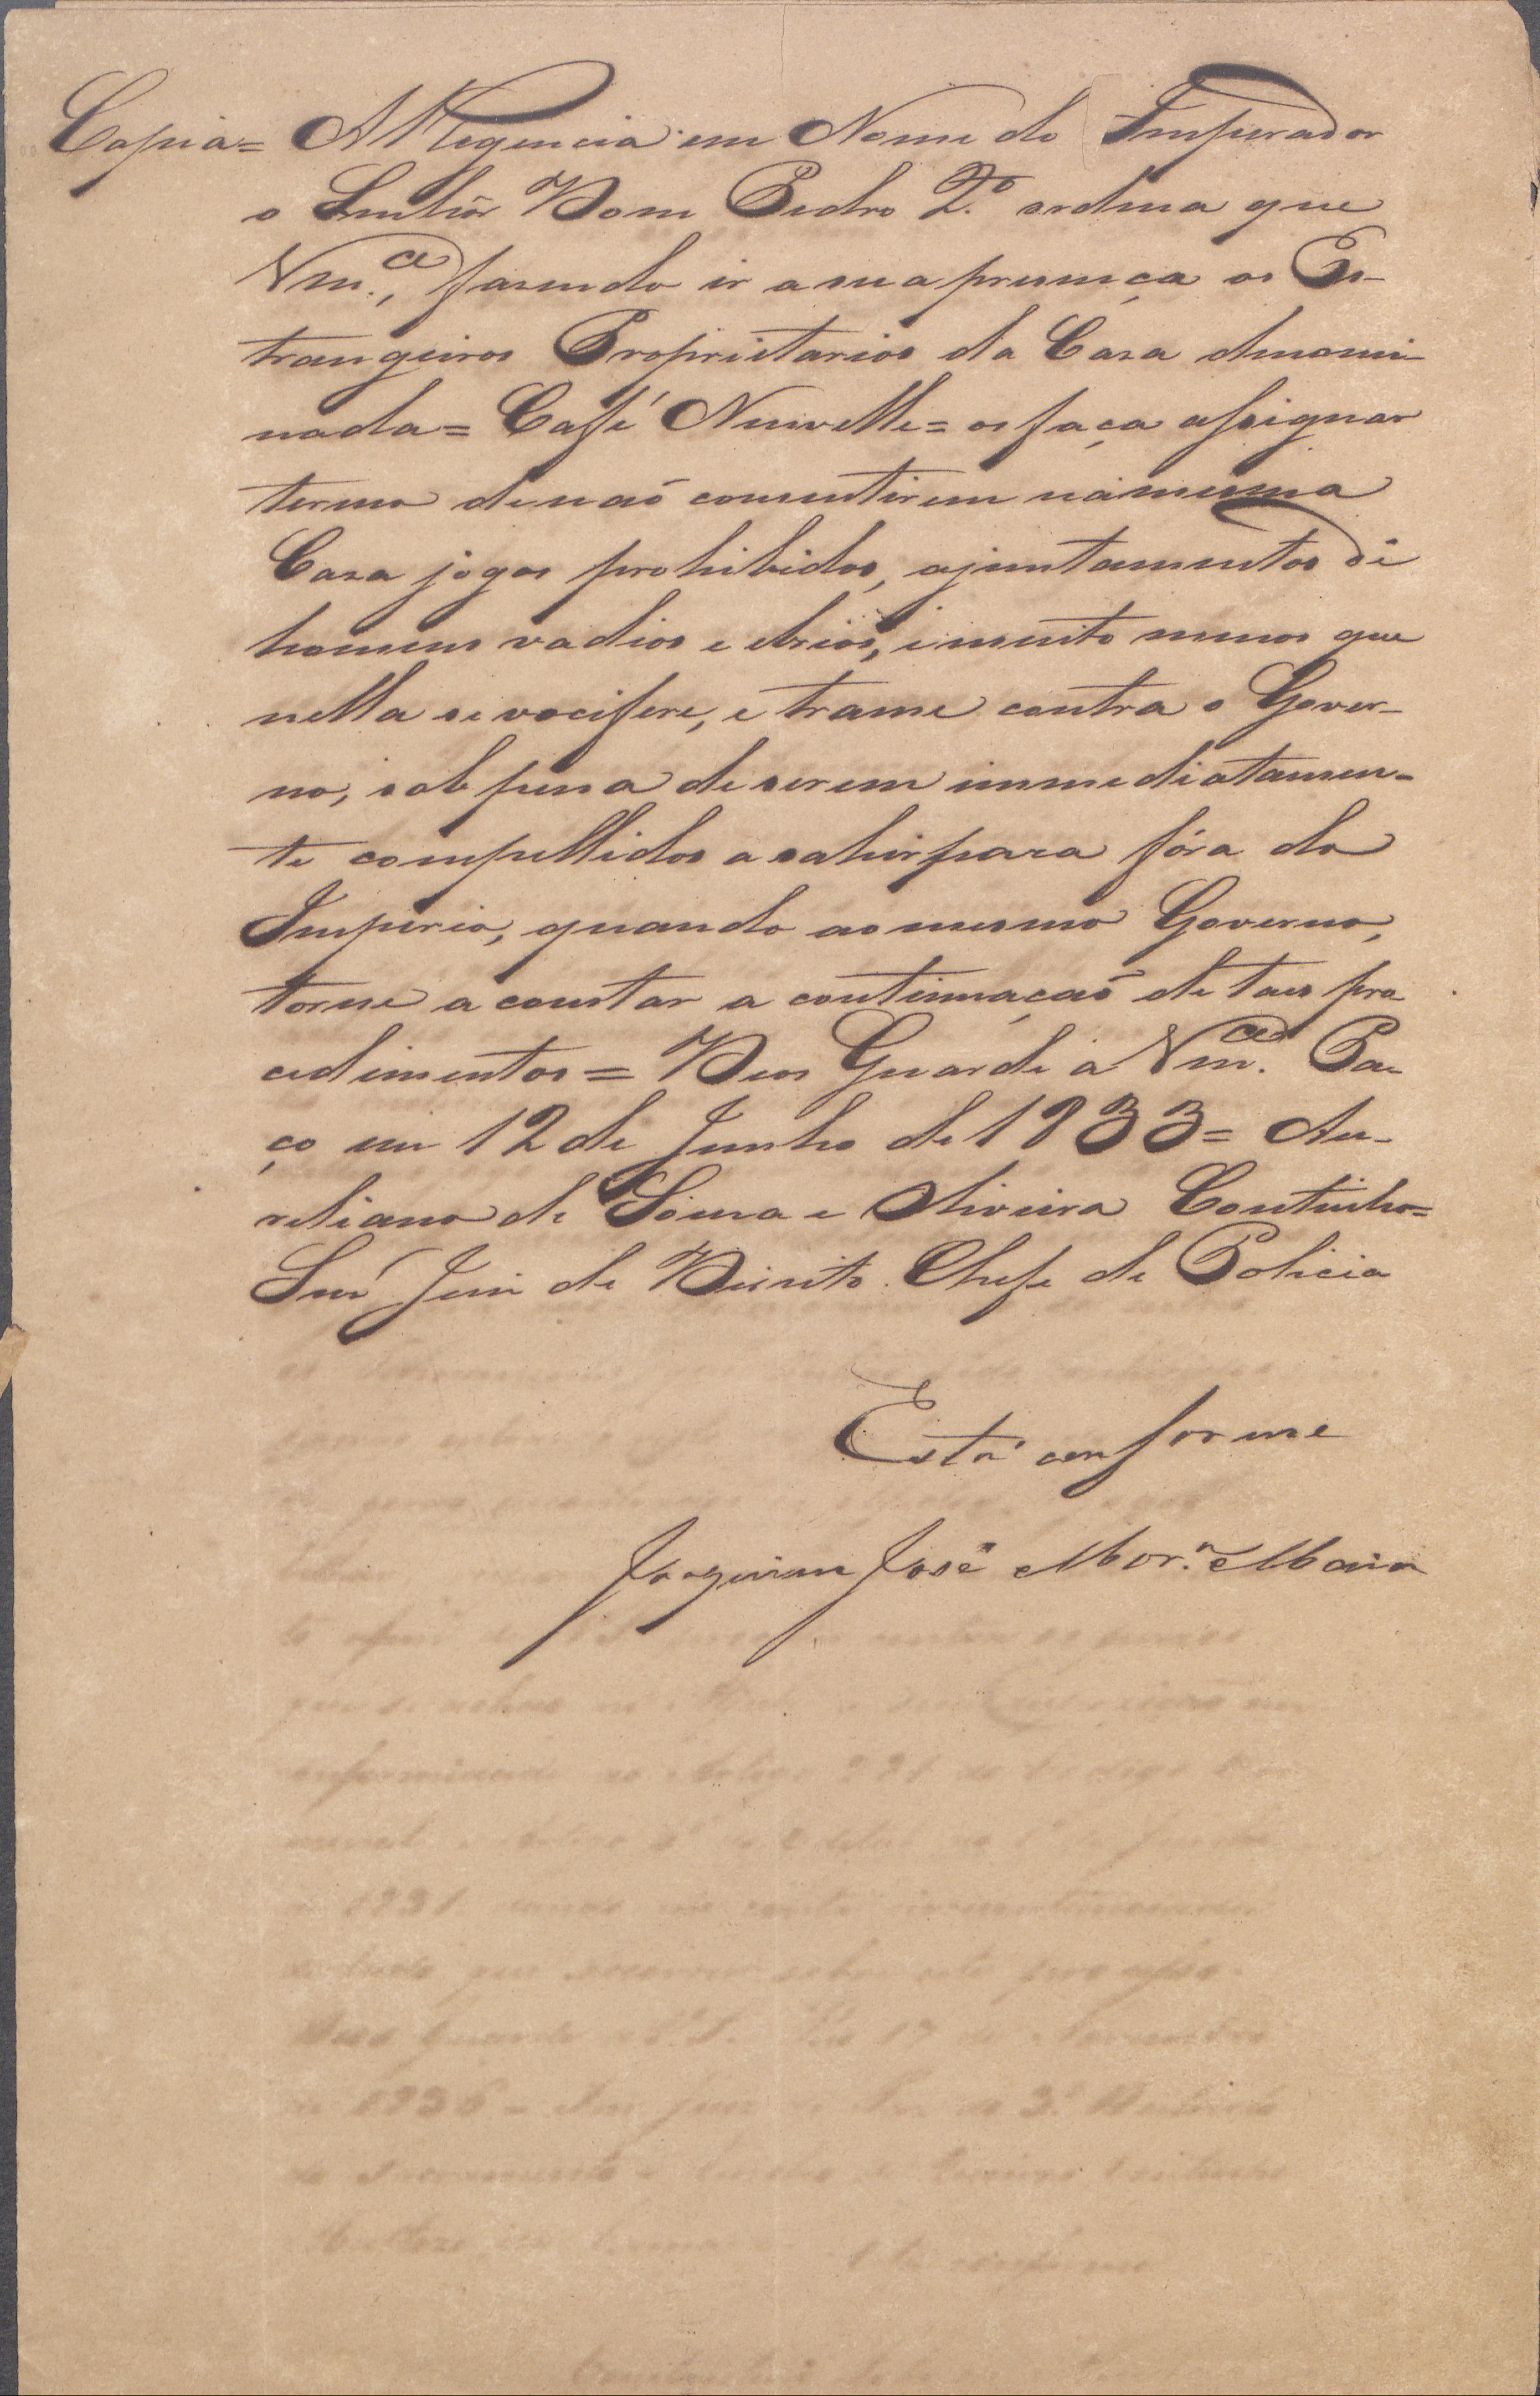 Copia = A Regencia em Nome do Imperador
o Senhôr Dom Pedro 2.º ordena que
Vm.ce, fasendo ir a sua presença os Es-
trangeiros Proprietarios da Casa denomi-
nada = Café Neuvelle = os faça assignar
termo de naõ consentirem na mesma
Casa jogos prohibidos, ajuntamentos de
homens vadios e ebrios, e muito menos que
nella se vocifere, e trame contra o Gover-
no, sob pena de serem immediatamen-
te compellidos a sahir para fóra do
Imperio, quando ao mesmo Governo,
torne a constar a continuaçaõ de taes pro
cedimentos = Deos Guarde a Vm.ce Pa-
ço em 12 de Junho de 1833 = Au-
reliano de Sousa e Oliveira Coutinho =
Snr Juiz de Direito Chefe de Policia
Está conforme
Joaquim José Mor.ª Maia